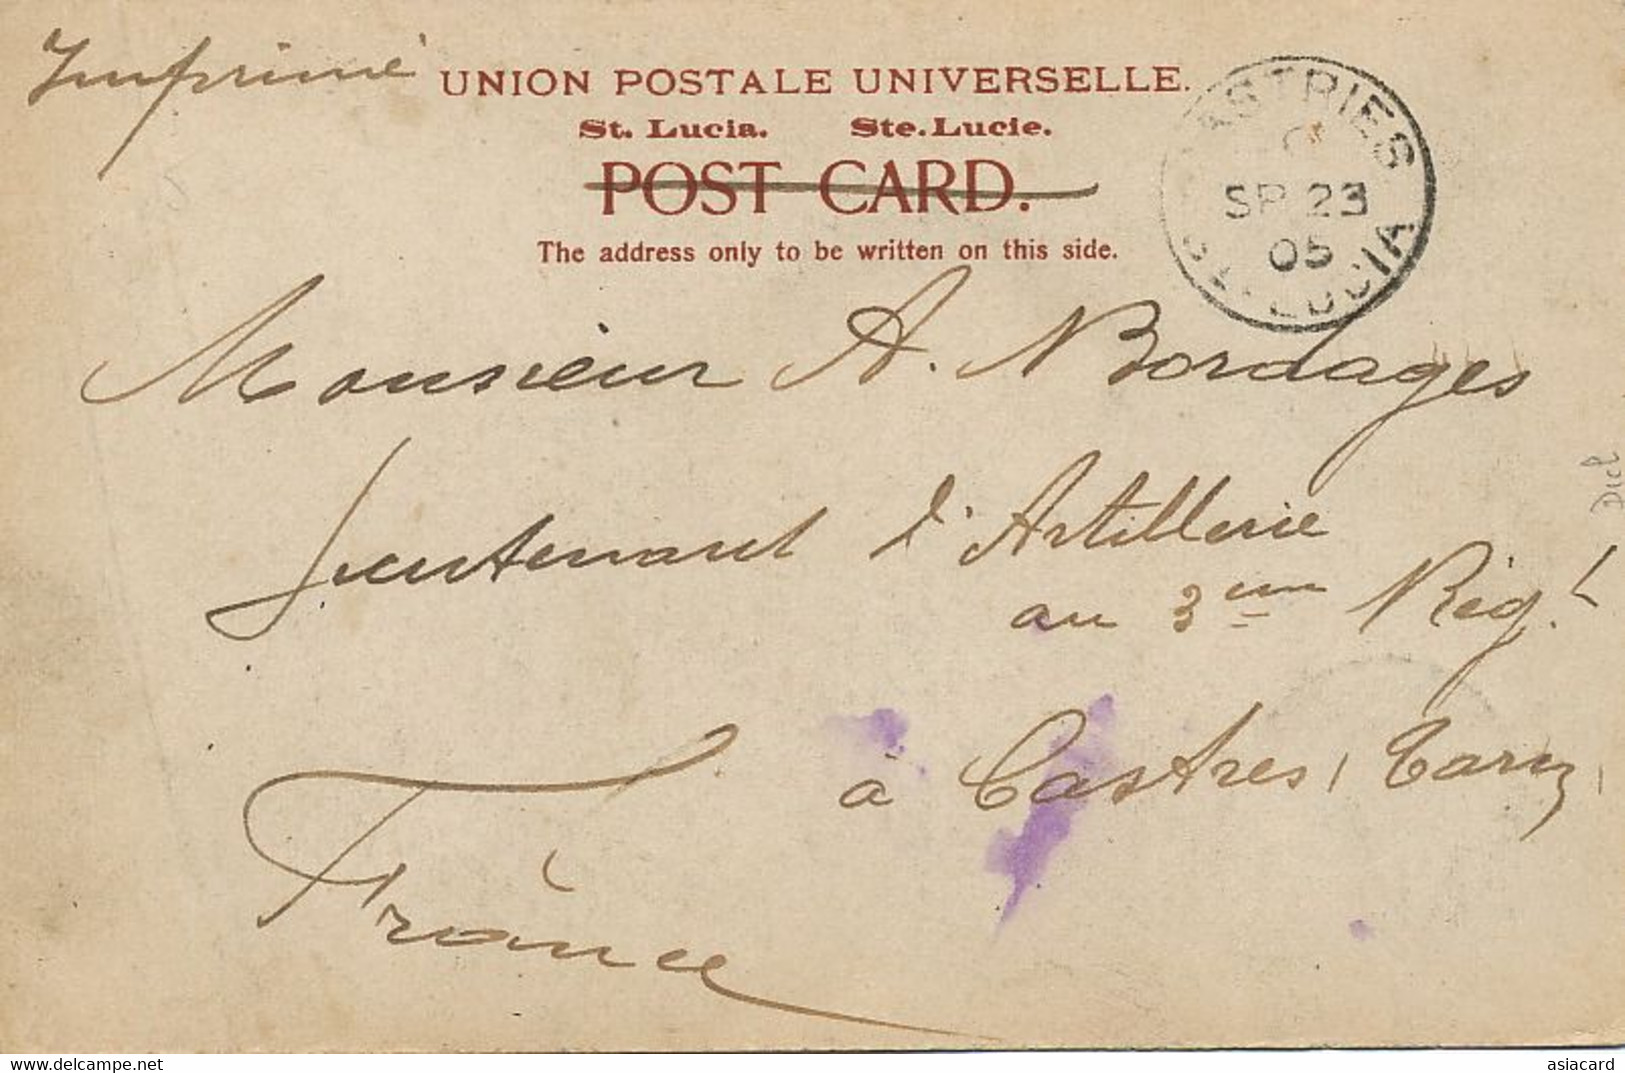 Imprimé
UNION POSTALE UNIVERSELLE.
St. Lucia. Ste. Lucie.
POST CARD.
The address only to be written on this side.
CASTRIES
C
SP 23
05
ST. LUCIA
Monsieur A. Bordages
Lieutenant d'Artillerie
au 3eme Régt
à Castres, Tarn,
France
delcampe.net
asiacard